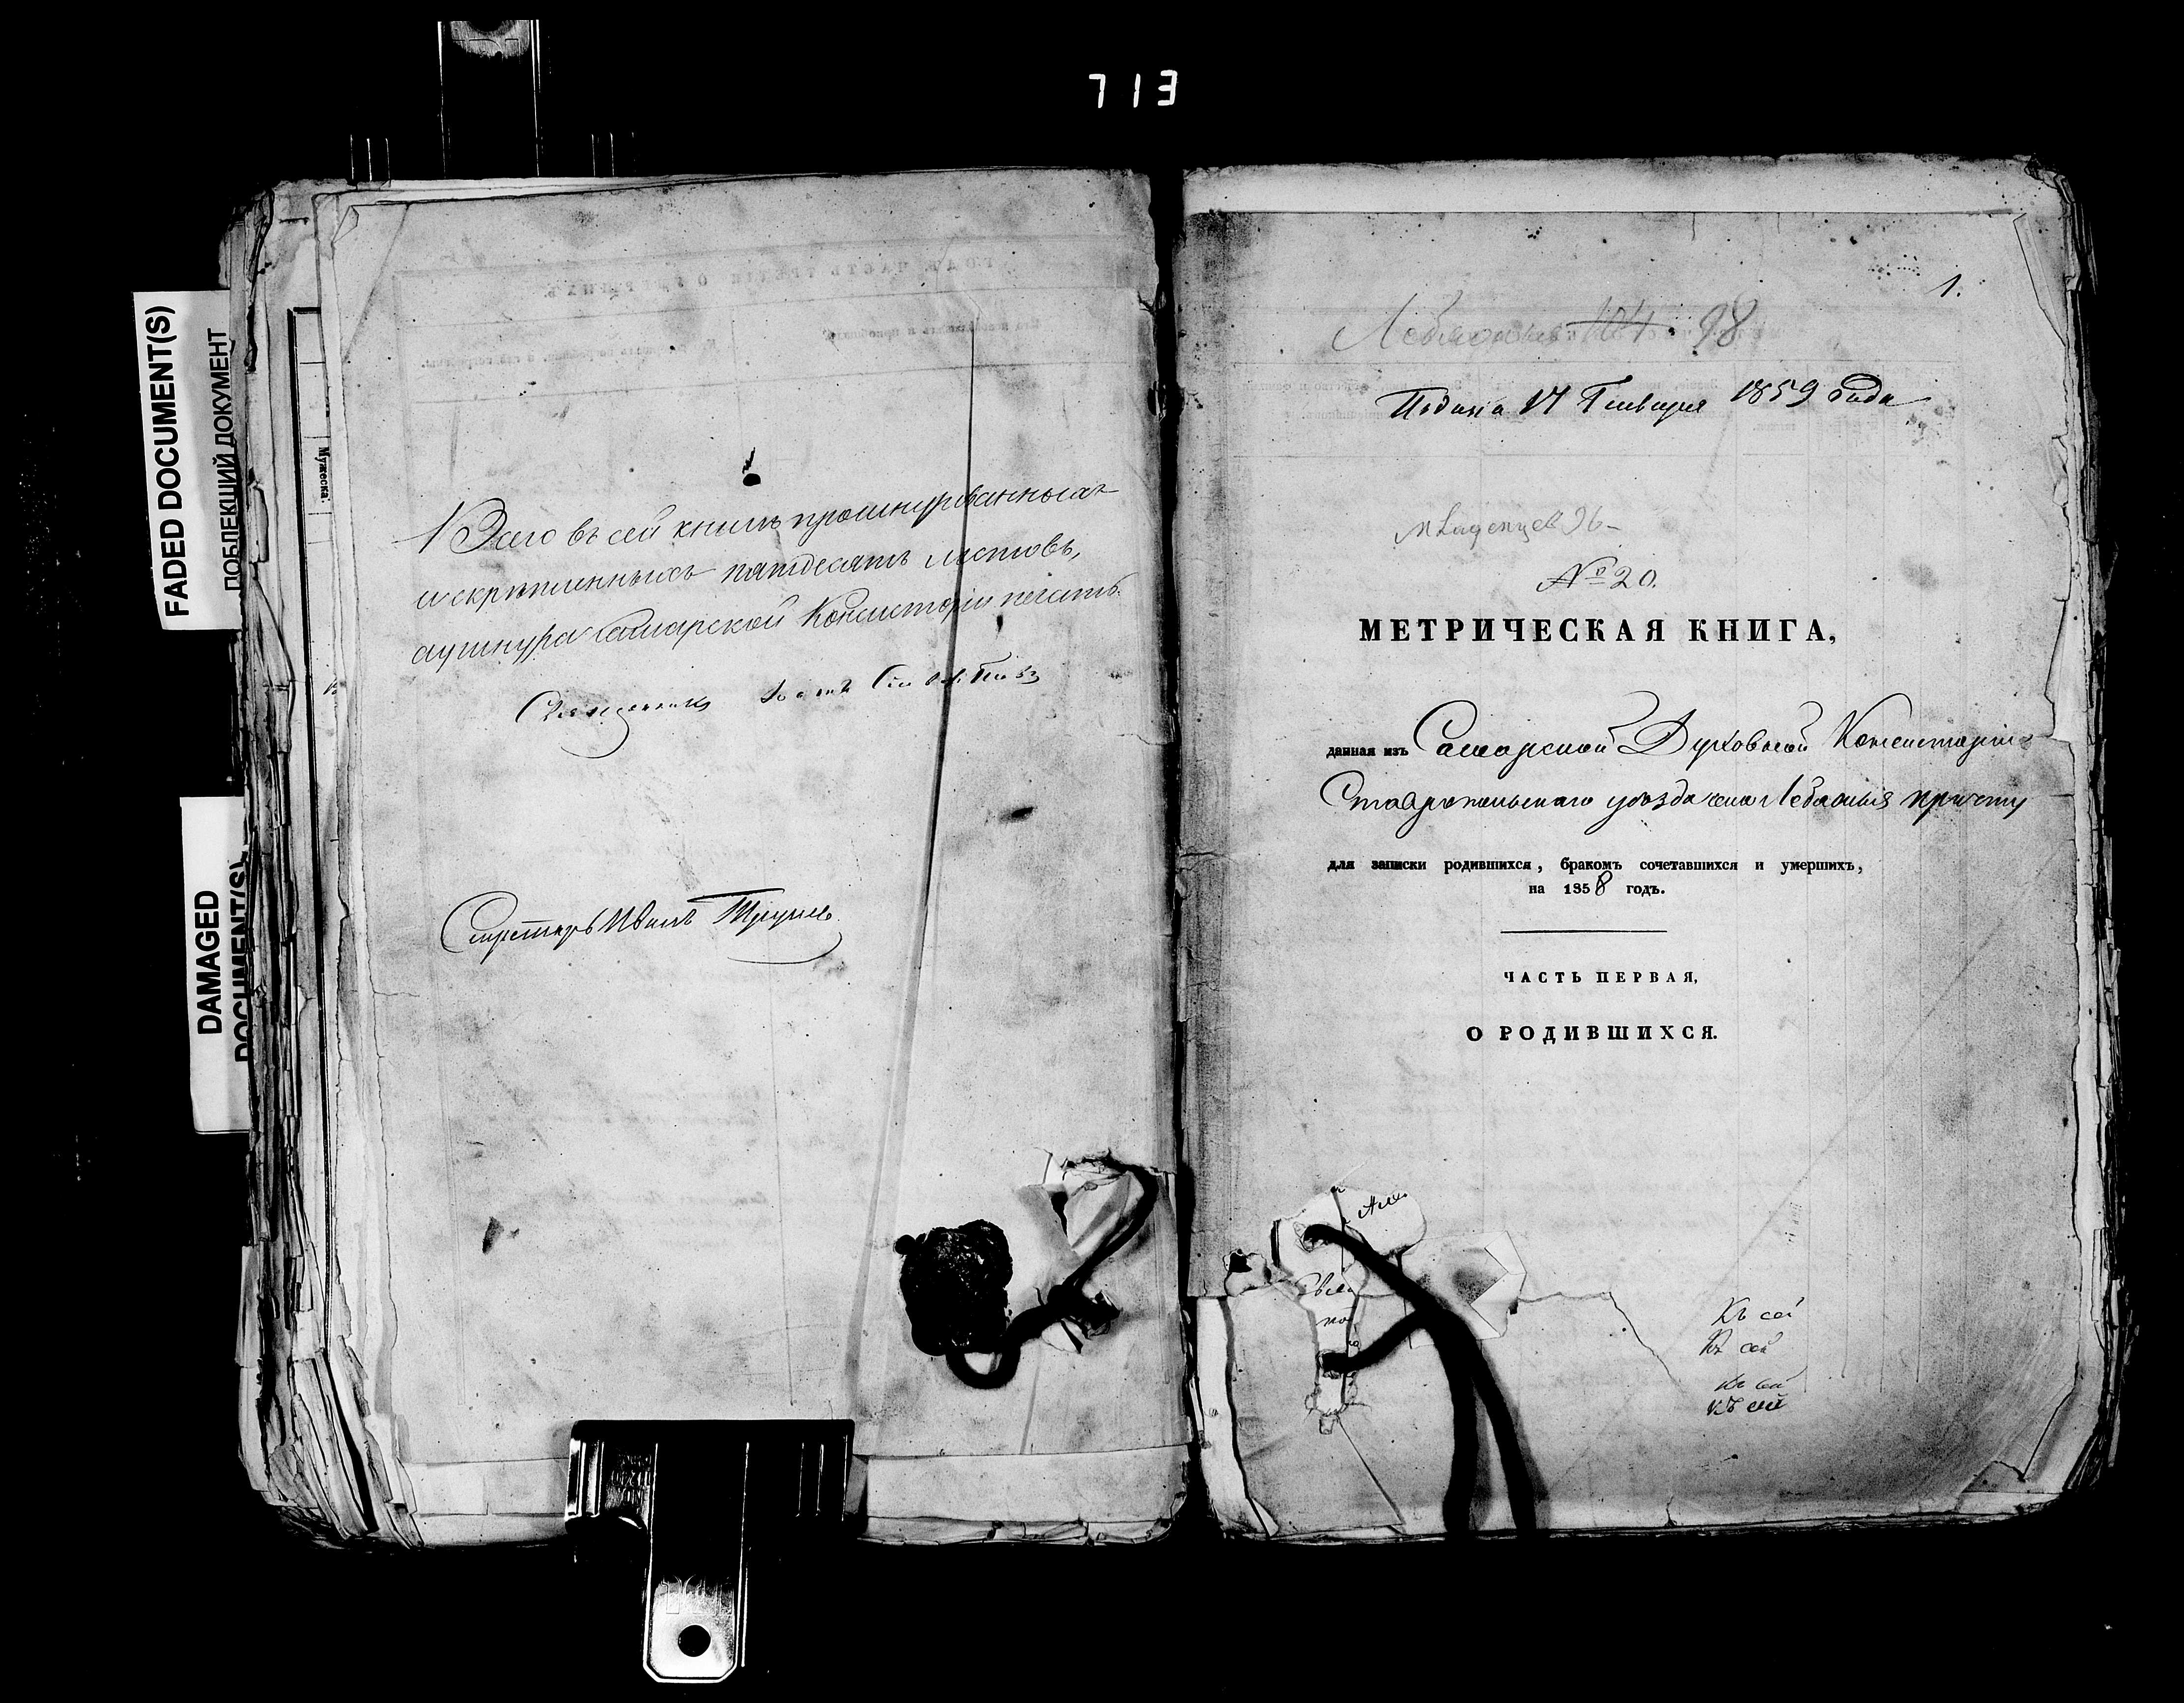 713
FADED DOCUMENT(S)
ПОБЛЕКЩИЙ ДОКУМЕНТ
DAMAGED
DOCUMENT(S)
Мужеска.
Всего въ сей книгѣ прошнурованныхъ
и скрѣпленныхъ пятдесятъ листовъ,
а у шнура Самарской Консисторіи печать.
Священникъ
Секретарь Иванъ
1.
Лебяжье 104. 98
Подана 17 Генваря 1859 года
младенцев 96
№ 20.
МЕТРИЧЕСКАЯ КНИГА,
данная изъ Самарской Духовной Консисторіи
Ставропольскаго уѣзда села Лебяжья причту
для записки родившихся, бракомъ сочетавшихся и умершихъ,
на 1858 годъ.
ЧАСТЬ ПЕРВАЯ,
О РОДИВШИХСЯ.
Къ сей
Къ сей
Къ сей
Къ сей